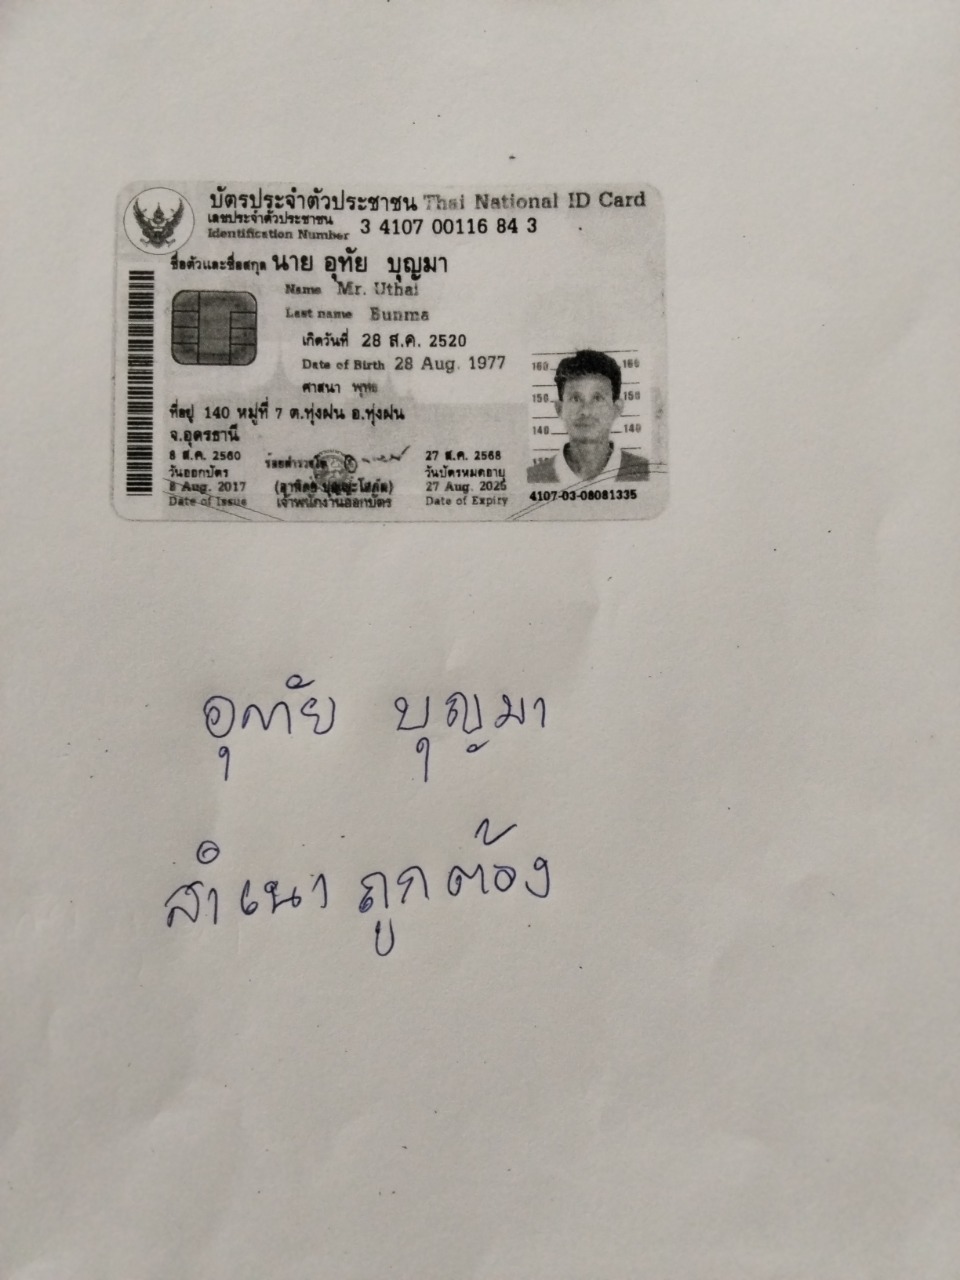 บัตรประจำตัวประชาชน Thai National ID Card
เลขประจำตัวประชาชน
Identification Number 3 4107 00116 84 3
ชื่อตัวและชื่อสกุล นาย อุทัย บุญมา
Name Mr. Uthai
Last name Bunma
เกิดวันที่ 28 ส.ค. 2520
Date of Birth 28 Aug. 1977
ศาสนา พุทธ
ที่อยู่ 140 หมู่ที่ 7 ต.ทุ่งฝน อ.ทุ่งฝน
จ.อุดรธานี
8 ส.ค. 2560
วันออกบัตร
8 Aug. 2017
Date of Issue
เจ้าพนักงานออกบัตร
27 ส.ค. 2568
วันบัตรหมดอายุ
27 Aug. 2025
Date of Expiry
160 160
150 150
140 140
4107-03-08081335
อุทัย บุญมา
สำเนาถูกต้อง